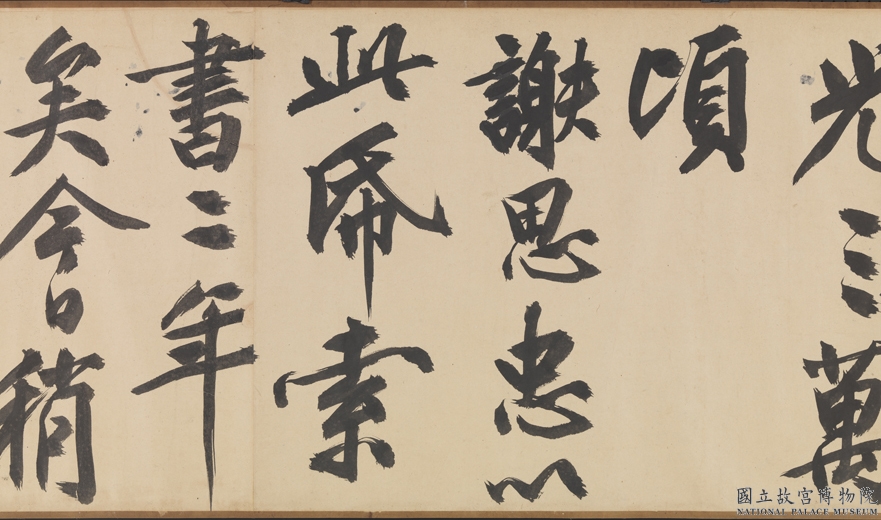 光三萬
頃
謝思忠以
此帋索
書二年
矣今日稍
國立故宮博物院
NATIONAL PALACE MUSEUM